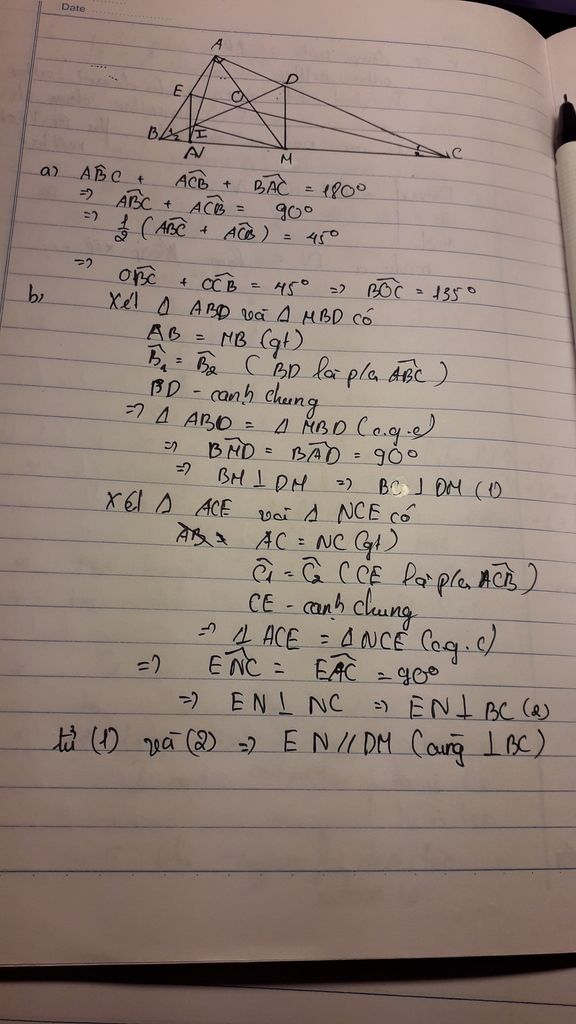 Date
A
E
D
O
B
2
I
N
M
C
a) ABC + ACB + BAC = 180°
=> ABC + ACB = 90°
=> 1/2 (ABC + ACB) = 45°
=> OBC + OCB = 45° => BOC = 135°
b, Xét Δ ABD và Δ MBD có
AB = MB (gt)
B1 = B2 ( BD là p/g ABC )
BD - cạnh chung
=> Δ ABD = Δ MBD (c.g.c)
=> BMD = BAD = 90°
=> BM ⊥ DM => BC ⊥ DM (1)
Xét Δ ACE và Δ NCE có
AC = NC (gt)
C1 = C2 ( CE là p/g ACB )
CE - cạnh chung
=> Δ ACE = Δ NCE (c.g.c)
=> ENC = EAC = 90°
=> EN ⊥ NC => EN ⊥ BC (2)
từ (1) và (2) => EN // DM (cùng ⊥ BC)